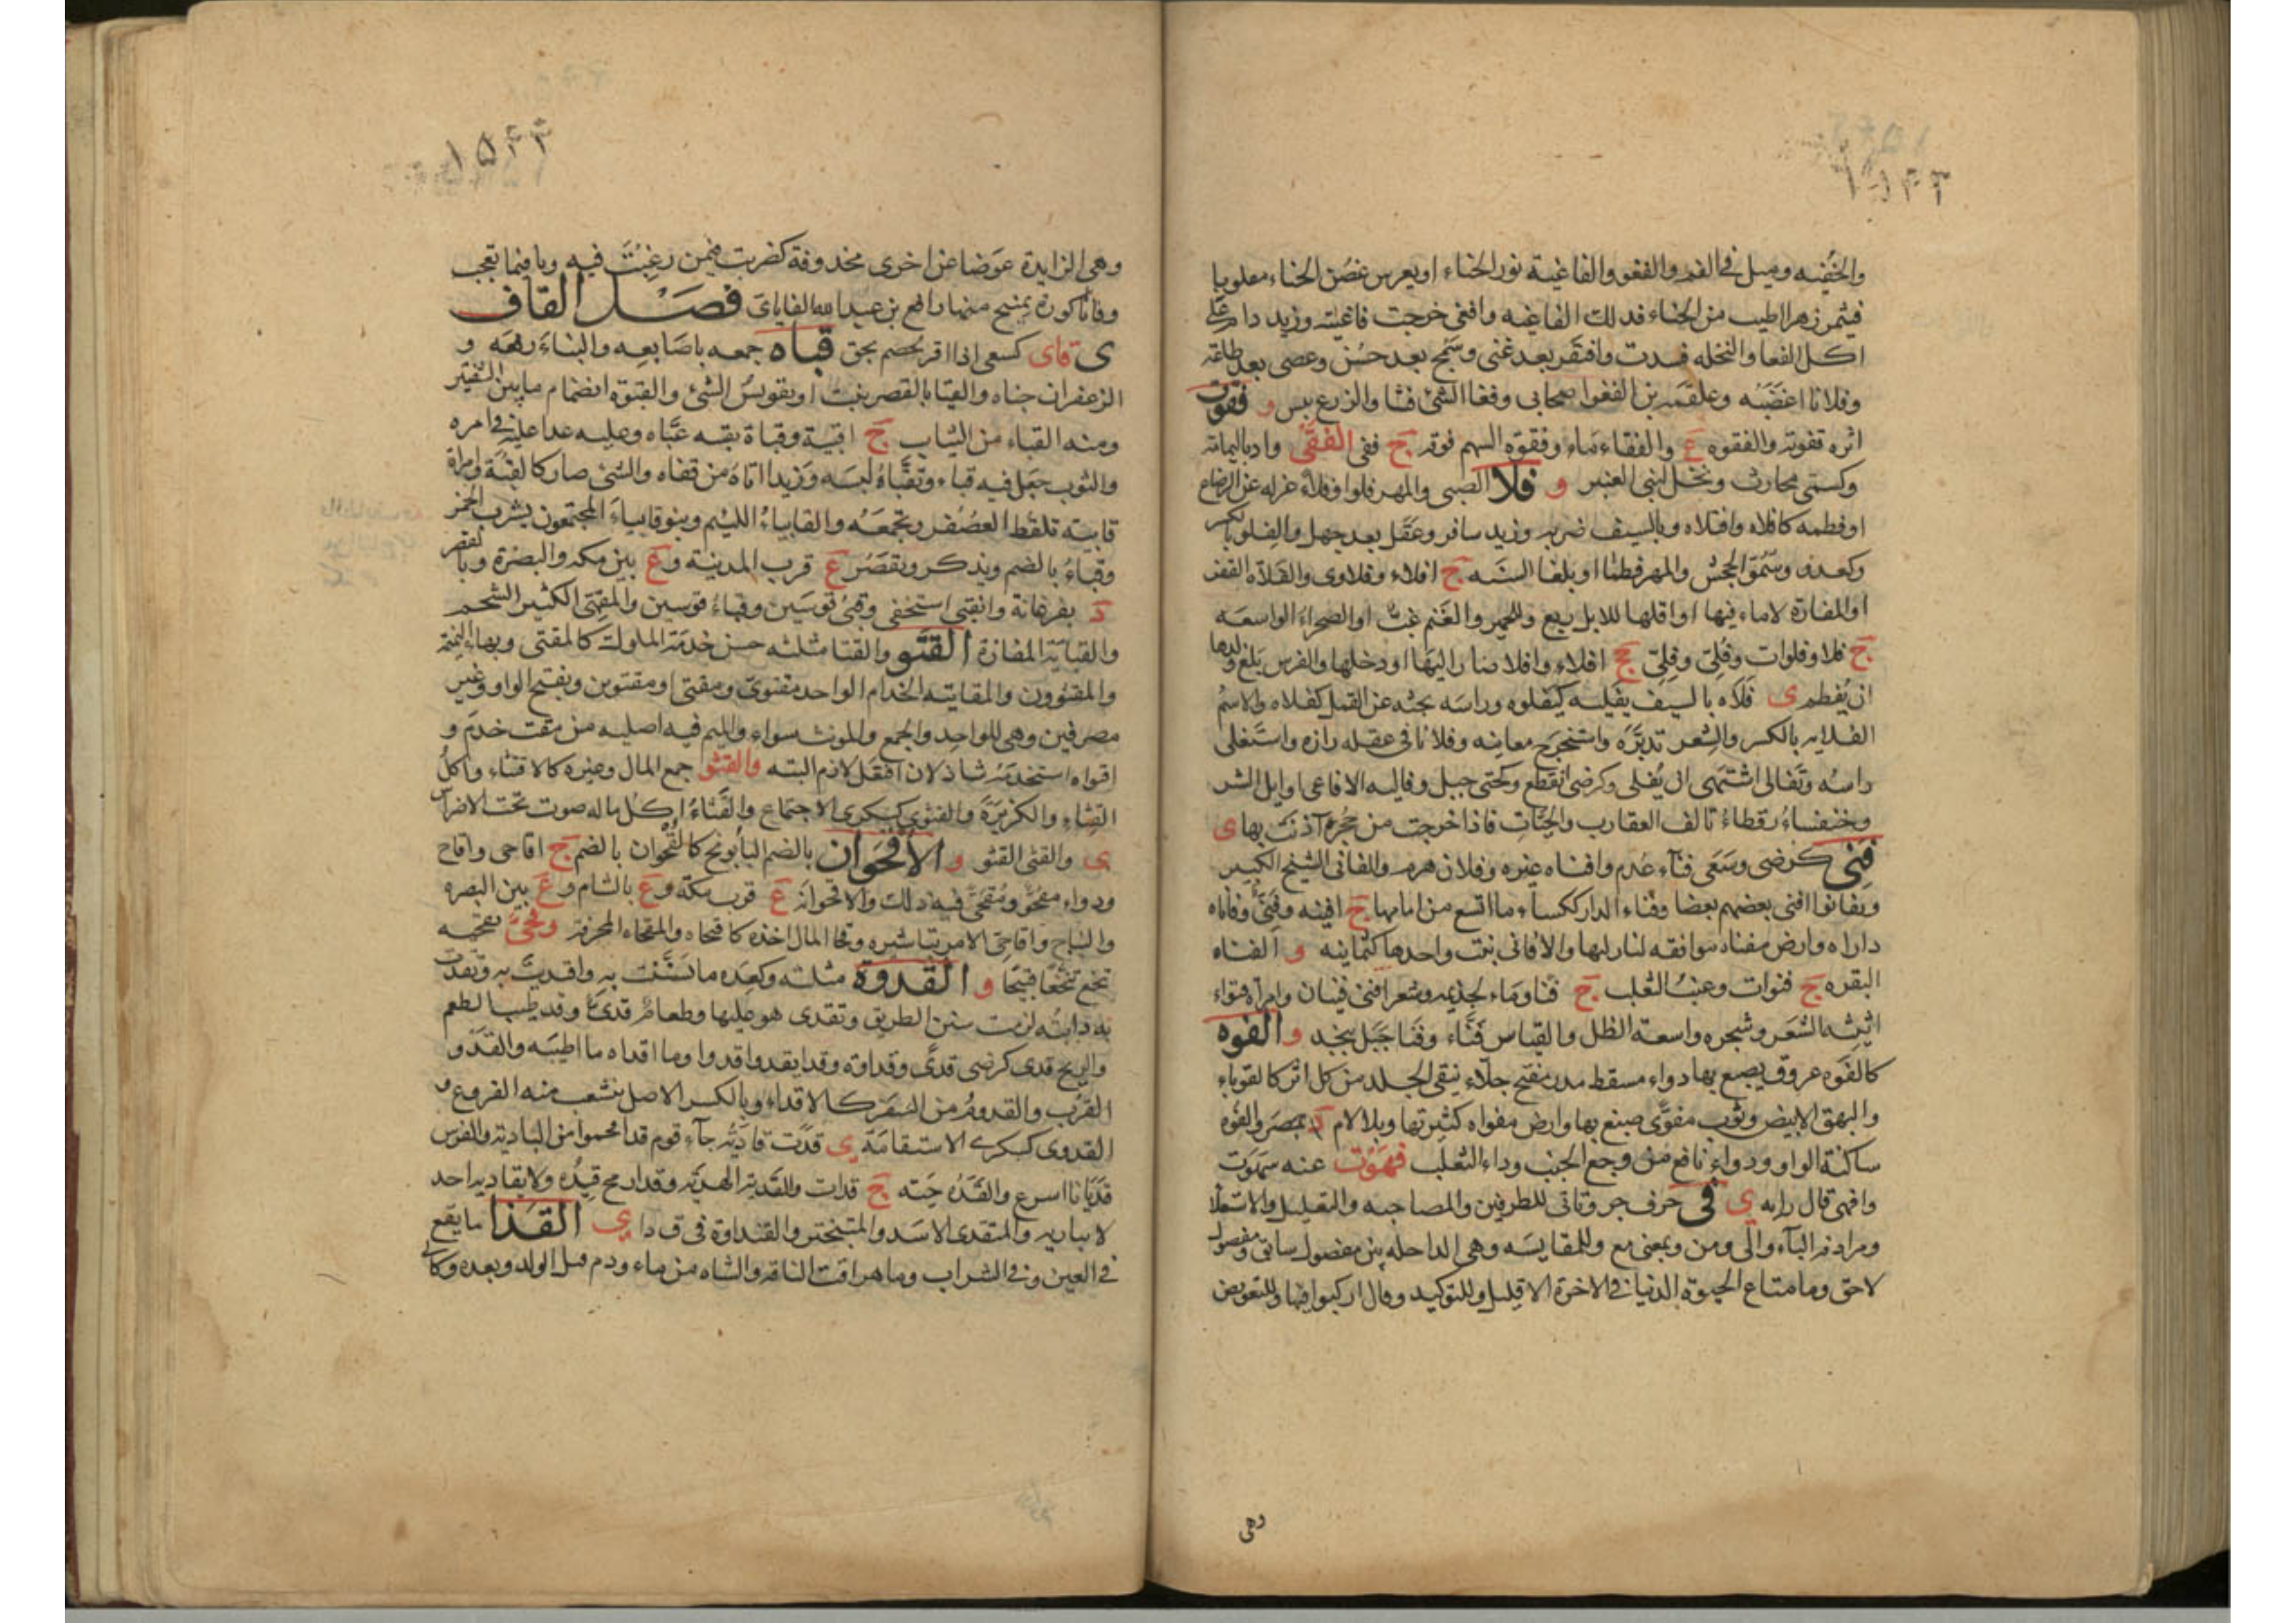 والجفنه وميل في الفم والفغو والفاغية نور الحناء او يغرس غصن الحناء مقلوبا
فيثمر زهرا اطيب من الحناء فذلك الفاغيه وافغى خرجت فاغيته وزيد دام على
اكل الفغا والنخله فسدت وافتقر بعد غنى وسمج بعد حسن وعصى بعد طاعة
وفلانا اغضبه وعلقمه بن الفغوا صحابي وفغا الشئ فشا والزرع يبس و فقوت
اثره قفوته والفقوه ع والفقاء ماء وفقوة السهم فوقه ج فقى الفقى واد باليمامة
وكسمى محارث ونخل لبني العنبر و فلا الصبى والمهر فلوا وفلاء عزله عن الرضاع
او فطمه كافلاه وافتلاه وبالسيف ضربه وزيد سافر وعقل بعد جهل والفلو بالكسر
وكعدو وسمو الجحش والمهر فطما او بلغا السنه ج افلاء وفلاوى والفلاه القفر
او المفازة لا ماء فيها او اقلها للابل ربع وللحمير والغنم غب او الصحراء الواسعه
ج فلا وفلوات وفلى وفلى ج افلاء وافلا صار اليها او دخلها والفرس بلغ ولدها
ان يفطم ى فلاه بالسيف يفليه كيفلوه وراسه بحثه عن القمل كفلاه والاسم
الفلايه بالكسر والشعر تدبره واستخرج معانيه وفلانا في عقله رازه واستفلى
راسه وتفالى اشتهى ان يفلى وكرضى انقطع وكحتى جبل وفاليه الافاعى اوايل الشر
وخنفساء رقطاء تالف العقارب والحيات فاذا خرجت من جحره آذنت بها ى
فنى كرضى وسعى فناء عدم وافناه غيره وفلان هرم والفانى الشيخ الكبير
وتفانوا افنى بعضهم بعضا وفناء الدار ككساء ما اتسع من امامها ج افنيه وفنى وفاناه
داراه وارض مفناه موافقه لنازليها والافانى نبت واحدها كثمانيه و الفناه
البقره ج فنوات وعنب الثعلب ج فنا وماء لجذيمه وشعر افنى فينان وامراه فنواء
اثيثه الشعر وشجره واسعة الظل والقياس فناء وفنا جبل بنجد والفوه
كالقوه عروق يصبغ بها دواء مسقط مدر مفتح جلاء ينقى الجلد من كل اثر كالقوباء
والبهق الابيض وثوب مفوى صبغ بها وارض مفواه كثيرتها وبلا لام د بمصر والفوه
ساكنة الواو ودواء نافع من وجع الجنب وداء الثعلب فهوت عنه سهوت
وافهى قال رايه ى فى حرف جر وتاتى للظرفين والمصاحبه والتعليل والاستعلا
ومرادفة الباء والى ومن وبمعنى مع وللمقايسه وهى الداخله بين مفضول سابق ومفضول
لاحق وما متاع الحيوة الدنيا في الاخرة الا قليل وللتوكيد وقال اركبوا فيها وللتعويض
وهى
وهى الزايدة عوضا عن اخرى محذوفة كضربت فيمن رغبت فيه ويا فيما تعجب
وفانا كورة بمنبج منها رافع بن عبد الله الفاياى فصل القاف
ى قاى كسعى اذا اقر لخصم بحق قباه جمعه باصابعه والبناء رفعه و
الزعفران جناه والقبا بالقصر نبت او تقويس الشئ والقبوة انضمام ما بين الشفتين
ومنه القباء من الثياب ج اقبية وقباة بقبه عباه وعليه عدا عليه في امره
والثوب جعل فيه قباء وتقباه لبسه وزيدا اتاه من قفاه والشئ صار كالقبة وامراة
قابية تلقط العصفر وتجمعه والقابياء اللئيم وبنو قابياء المجتمعون يشرب الخمر
وقباء بالضم ويذكر ويقصر ع قرب المدينة وع بين مكه والبصرة وبالقصر
د بفرغانة وانقبى استخفى وقبى قوسين وقباء قوسين والمقبى الكثير الشحم
والقباية المفازة القتو والقتا مثلثه حسن خدمة الملوك كالمقتى وبهاء النميمة
والمقتوون والمقاتيه الخدام الواحد مقتوى ومقتى او مقتوين وتفتح الواو وغير
مصرفين وهى للواحد والجمع والمونث سواء والميم فيه اصليه من مقت خدم و
اقتواه استخدمه شاذ لان افتعل لازم البته والقثو جمع المال وغيره كالاقتثاء واكل
القثاء والكزبرة والقثوى كسكرى الاجتماع والقثاء اكل ما له صوت تحت الاضراس
ى والقثى القثو و الاقحوان بالضم البابونج كالقحوان بالضم ج اقاحى واقاح
ودواء مقحو ومقحى فيه ذلك والاقحوانه ع قرب مكة وع بالشام وع بين البصره
والنباج واقاحى الامر تباشيره وقحا المال اخذه كاقتحاه والمقحاه المجرفة وقحى
تنخع تنخعا قبيحا و القدوة مثلثه وكعده ما تسننت به واقتديت به وتقدت
به دابته لزمت سنن الطريق وتقدى هو عليها وطعام قدى وقد طيب الطعم
والريح قدى كرضى قدى وقداوة وقدا يقدو قدوا وما اقداه ما اطيبه والقدو
القرب والقدوم من السفر كالاقداء وبالكسر الاصل تتشعب منه الفروع و
القدوى كسكرى الاستقامة ى قدت قادية جاء قوم قد اقحموا من البادية والفرس
قديانا اسرع والقده حية ج قدات والقدية الهدية وقدا رمح قيده ولا يقاديه احد
لا يباريه والمتقدى الاسد والمتبختر والقنداوة فى ق د ا ى القذا ما يقع
في العين وفي الشراب وما هراقت الناقة والشاه من ماء ودم قبل الولد وبعده وكا